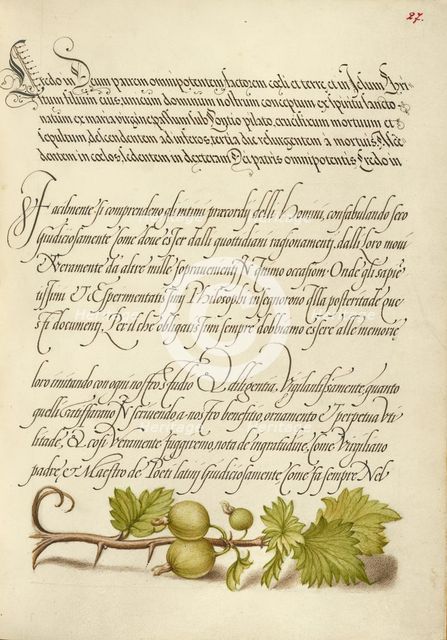 27.
Credo in Deum patrem omnipotentem, factorem coeli et terre, et in Jesum Chri
stum filium eius, unicum dominum nostrum conceptum ex spiritu sancto
natum ex maria virgine passum sub Pontio pilato, crucifixum mortuum et
sepultum, descendentem ad inferos, tertia die resurgentem à mortuis, Ascē
dentem in coelos, sedentem in dexteram Dei patris omnipotentis. Credo in
Facilmente si comprendeno gli intimi precordij delli Homini, confabulando seco
Giudiciosamente Come dove esser dalli quottidiani ragionamenti, dalli loro movi
Ò Veramente da altre mille sopravenenti N' animo occasioni. Onde gli sapiē
tissimi & Esperimentatissimi Philosophi insegnorno Alla posteritade que
sti documenti, Per il che obligatissimi sempre dobbiamo essere alle memorie
loro imitando con ogni nostro Studio & diligentia. Vigilantissamente, quanto
quelli Caffatirano N' scrivendo a nostro benefitto, ornamento & perpetua Vti
litade, & cosi Veramente fuggiremo, nota de ingratitudine, Come Virgiliano
padre, & Maestro de Poeti latini Giudiciosamente Come fa sempre Nel
Heritage
Heritage
Heritage